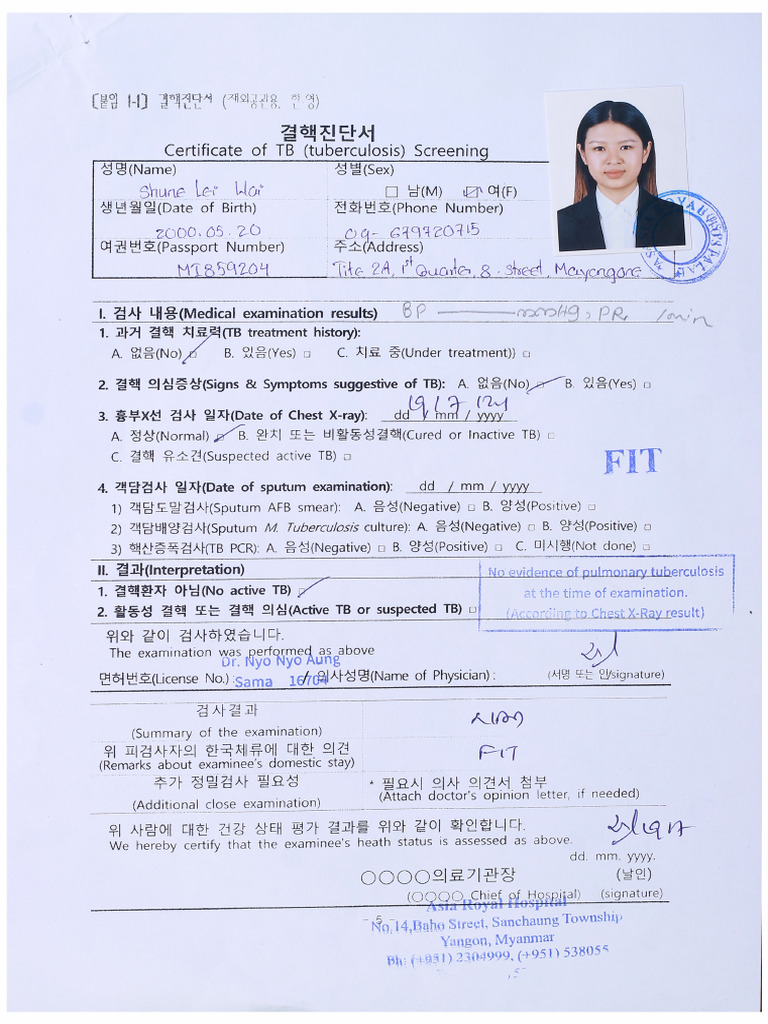 [붙임 1-1] 결핵진단서 (재외공관용, 한·영)
결핵진단서
Certificate of TB (tuberculosis) Screening
성명(Name) 성별(Sex)
Shune Lei Wai □ 남(M) ☑ 여(F)
생년월일(Date of Birth) 전화번호(Phone Number)
2000.05.20 09- 679720715
여권번호(Passport Number) 주소(Address)
MI859204 Tite 2A, 1st Quarter, 8 street, Mayangone
I. 검사 내용(Medical examination results) BP mmHg, PR /min
1. 과거 결핵 치료력(TB treatment history):
A. 없음(No) ☑ B. 있음(Yes) □ C. 치료 중(Under treatment)} □
2. 결핵 의심증상(Signs & Symptoms suggestive of TB): A. 없음(No) ☑ B. 있음(Yes) □
3. 흉부X선 검사 일자(Date of Chest X-ray): dd / mm / yyyy
A. 정상(Normal) ☑ B. 완치 또는 비활동성결핵(Cured or Inactive TB) □
C. 결핵 유소견(Suspected active TB) □
FIT
4. 객담검사 일자(Date of sputum examination): dd / mm / yyyy
1) 객담도말검사(Sputum AFB smear): A. 음성(Negative) □ B. 양성(Positive) □
2) 객담배양검사(Sputum M. Tuberculosis culture): A. 음성(Negative) □ B. 양성(Positive) □
3) 핵산증폭검사(TB PCR): A. 음성(Negative) □ B. 양성(Positive) □ C. 미시행(Not done) □
II. 결과(Interpretation)
1. 결핵환자 아님(No active TB) ☑
2. 활동성 결핵 또는 결핵 의심(Active TB or suspected TB) □
No evidence of pulmonary tuberculosis
at the time of examination.
(According to Chest X-Ray result)
위와 같이 검사하였습니다.
The examination was performed as above
Dr. Nyo Nyo Aung
면허번호(License No.) : Sama 16704 / 의사성명(Name of Physician) : (서명 또는 인/signature)
검사결과
(Summary of the examination)
위 피검사자의 한국체류에 대한 의견
(Remarks about examinee's domestic stay) FIT
추가 정밀검사 필요성 * 필요시 의사 의견서 첨부
(Additional close examination) (Attach doctor's opinion letter, if needed)
위 사람에 대한 건강 상태 평가 결과를 위와 같이 확인합니다.
We hereby certify that the examinee's heath status is assessed as above.
dd. mm. yyyy.
○○○○의료기관장 (날인)
(○○○○ Chief of Hospital) (signature)
- 5 -
Asia Royal Hospital
No.14,Baho Street, Sanchaung Township
Yangon, Myanmar
Ph: (+951) 2304999, (+951) 538055